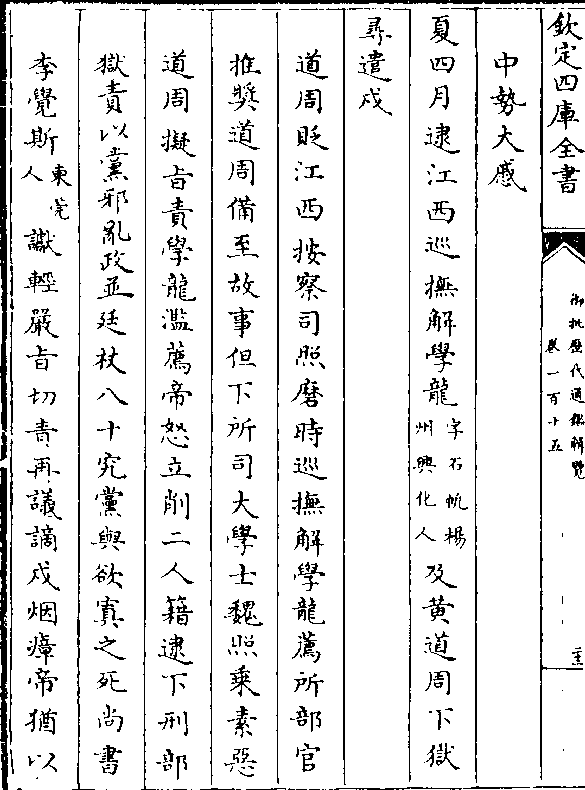 欽定四庫全書
御批歷代通鑑輯覽
卷一百十五
中勢大慼
夏四月逮江西巡撫解學龍字石帆楊州興化人及黄道周下獄
尋遣戍
道周貶江西按察司照磨時巡撫解學龍薦所部官
推奬道周備至故事但下所司大學士魏照乗素惡
道周擬旨責學龍濫薦帝怒立削二人籍逮下刑部
獄責以黨邪亂政並廷杖八十究黨與欲寘之死尚書
李覺斯東莞人讞輕嚴旨切責再議謫戍烟瘴帝猶以